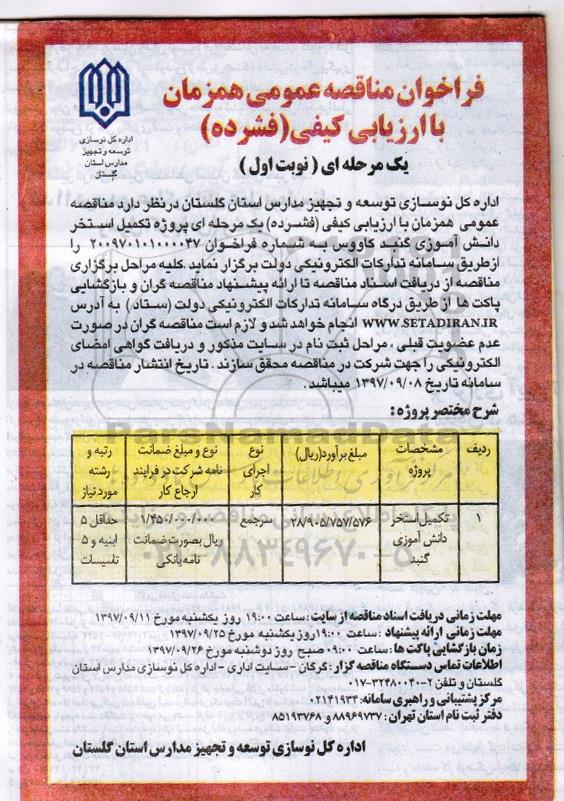 فراخوان مناقصه عمومی همزمان
با ارزیابی کیفی (فشرده)
یک مرحله ای ( نوبت اول )
اداره کل نوسازی
توسعه و تجهیز
مدارس استان
گلستان
اداره کل نوسازی توسعه و تجهیز مدارس استان گلستان درنظر دارد مناقصه
عمومی همزمان با ارزیابی کیفی (فشرده) یک مرحله ای پروژه تکمیل استخر
دانش آموزی گنبد کاووس به شماره فراخوان ۲۰۰۹۷۰۱۰۱۰۰۰۰۴۷ را
ازطریق سامانه تدارکات الکترونیکی دولت برگزار نماید. کلیه مراحل برگزاری
مناقصه از دریافت اسناد مناقصه تا ارائه پیشنهاد مناقصه گران و بازگشایی
پاکت ها از طریق درگاه سامانه تدارکات الکترونیکی دولت (ستاد) به آدرس
WWW.SETADIRAN.IR انجام خواهد شد و لازم است مناقصه گران در صورت
عدم عضویت قبلی ، مراحل ثبت نام در سایت مذکور و دریافت گواهی امضای
الکترونیکی را جهت شرکت در مناقصه محقق سازند . تاریخ انتشار مناقصه در
سامانه تاریخ ۱۳۹۷/۰۹/۰۸ میباشد .
شرح مختصر پروژه :
ردیف | مشخصات پروژه | مبلغ برآورد(ریال) | نوع اجرای کار | نوع و مبلغ ضمانت نامه شرکت در فرایند ارجاع کار | رتبه و رشته مورد نیاز
۱ | تکمیل استخر دانش آموزی گنبد | ۲۸/۹۰۵/۷۵۷/۵۷۶ | سرجمع | ۱/۴۵۰/۰۰۰/۰۰۰ ریال بصورت ضمانت نامه بانکی | حداقل ۵ ابنیه و ۵ تاسیسات
مهلت زمانی دریافت اسناد مناقصه از سایت : ساعت ۱۹:۰۰ روز یکشنبه مورخ ۱۳۹۷/۰۹/۱۱
مهلت زمانی ارائه پیشنهاد : ساعت ۱۹:۰۰ روز یکشنبه مورخ ۱۳۹۷/۰۹/۲۵
زمان بازگشایی پاکت ها : ساعت ۰۹:۰۰ صبح روز دوشنبه مورخ ۱۳۹۷/۰۹/۲۶
اطلاعات تماس دستگاه مناقصه گزار : گرگان - سایت اداری - اداره کل نوسازی مدارس استان
گلستان و تلفن ۲-۳۲۴۸۰۰۴۰-۰۱۷
مرکز پشتیبانی و راهبری سامانه: ۰۲۱۴۱۹۳۴
دفتر ثبت نام استان تهران : ۸۸۹۶۹۷۳۷ و ۸۵۱۹۳۷۶۸
اداره کل نوسازی توسعه و تجهیز مدارس استان گلستان
ParsNamadData
۰۲۱-۸۸۳۴۹۶۷۰-۵